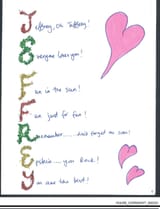 Jeffrey, Oh Jeffrey!
Everyone loves you!
Fun in the sun!
Fun just for fun!
Remember.....don't forget me soon!
Epstein.....you Rock!
You are the best!